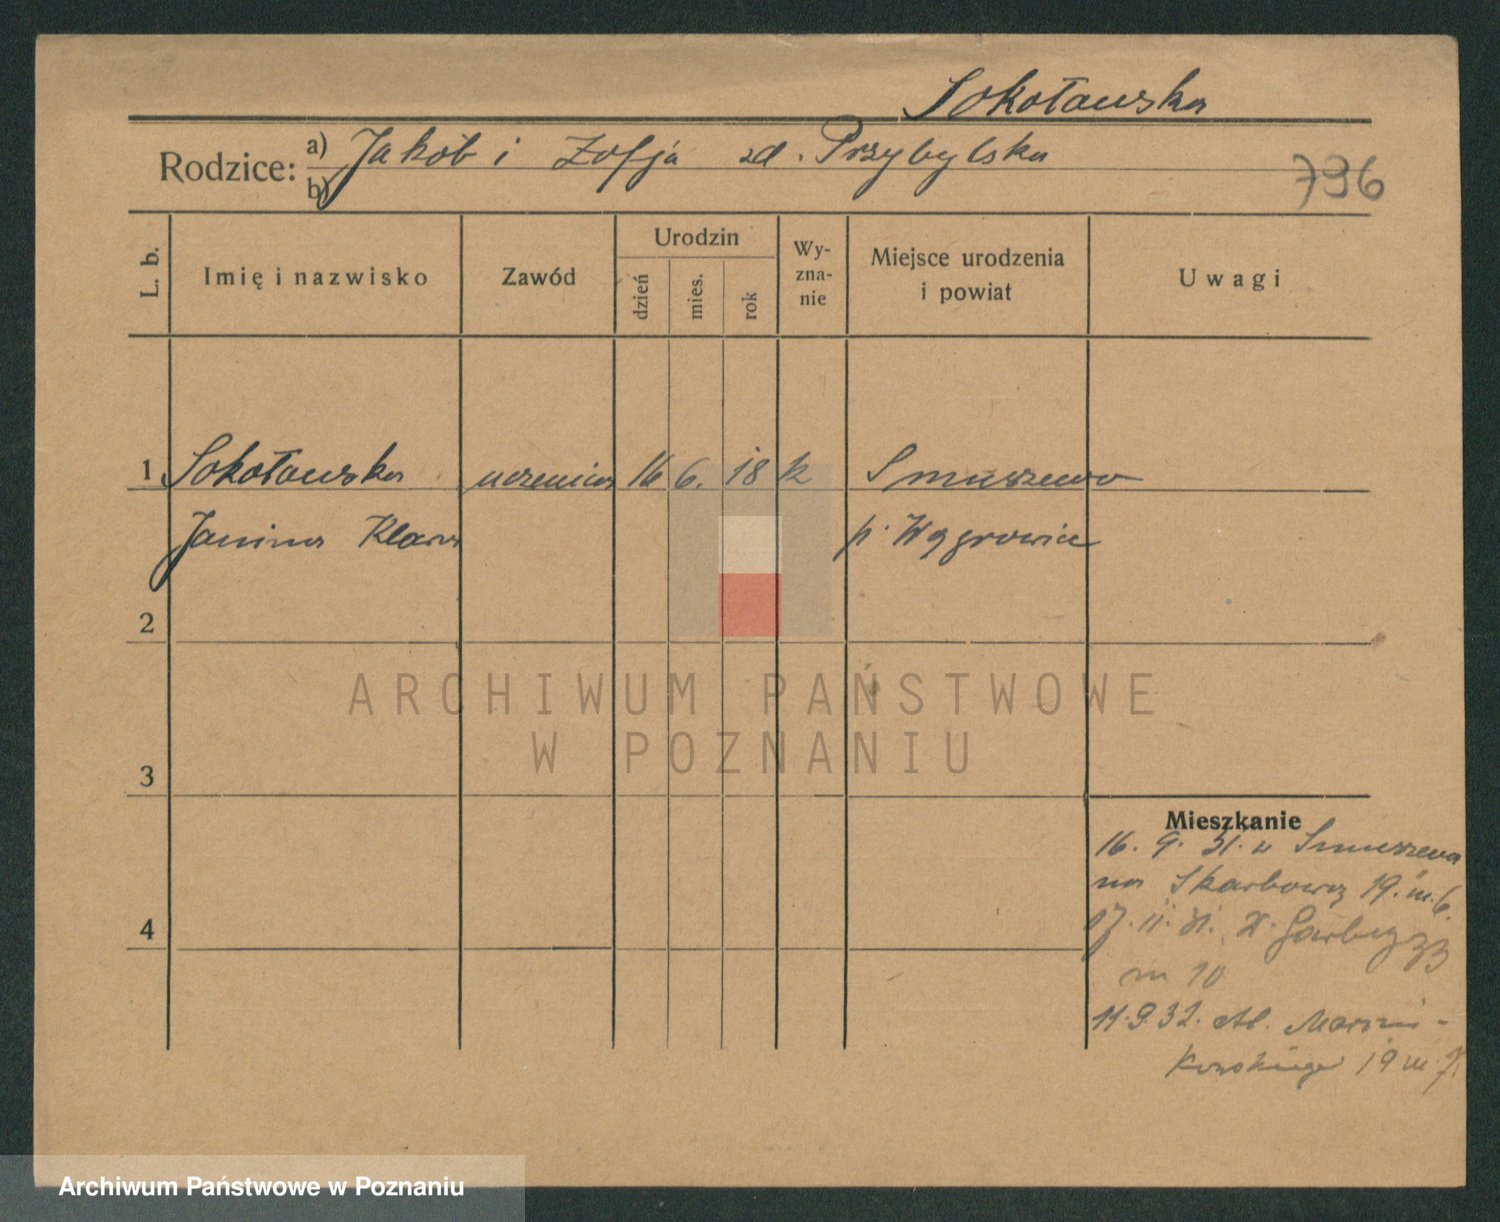 Sokołowska
Rodzice: a) Jakób i Zofja zd. Przybylska
b)
796
L. b.
Imię i nazwisko
Zawód
Urodzin
dzień
mies.
rok
Wy-
zna-
nie
Miejsce urodzenia
i powiat
Uwagi
1 Sokołowska uczenica 16 6. 18 k Smuszewo
Janina Klara p. Wągrowiec
2
ARCHIWUM PAŃSTWOWE
W POZNANIU
3
Mieszkanie
16. 9. 31. z Smuszewa
na Skarbowa 19. m. 6.
17. 11. 31. Garbary 33
4
m 10
11. 9. 32. Al. Marcin-
kowskiego 19 m. 7.
Archiwum Państwowe w Poznaniu